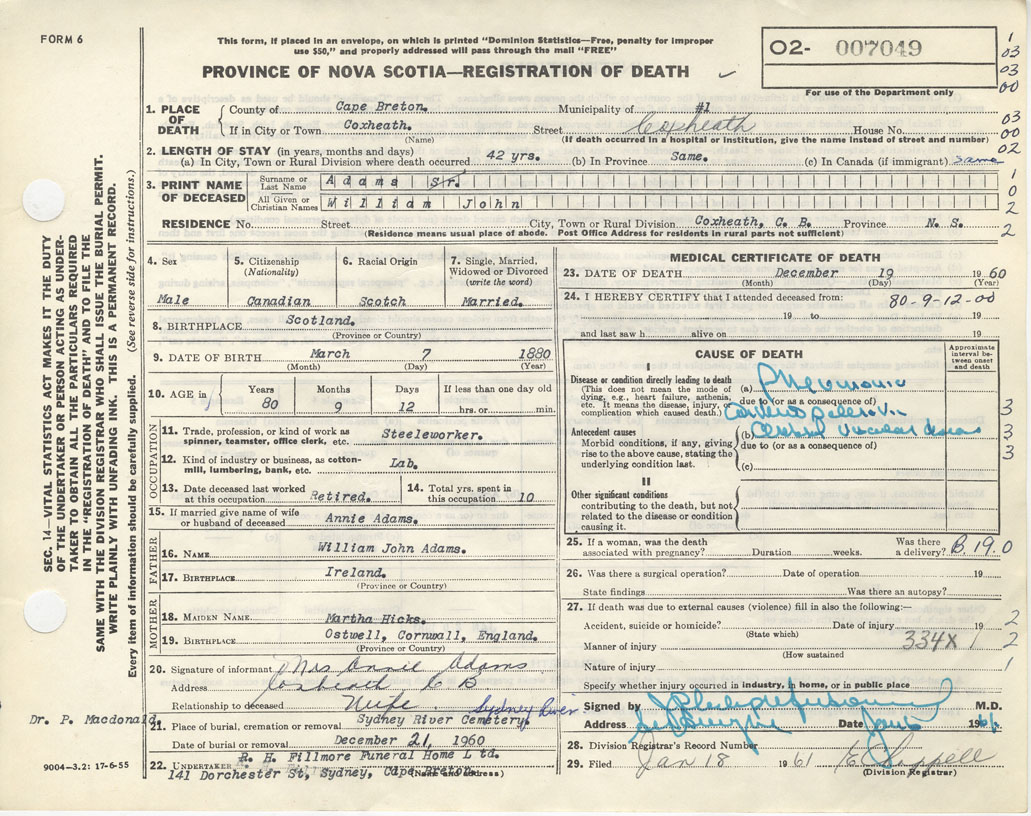 FORM 6
This form, if placed in an envelope, on which is printed "Dominion Statistics—Free, penalty for improper
use $50," and properly addressed will pass through the mail "FREE"
PROVINCE OF NOVA SCOTIA—REGISTRATION OF DEATH
O2- 007049
For use of the Department only
1. PLACE OF DEATH
County of Cape Breton. Municipality of #1
If in City or Town Coxheath. Street Coxheath House No.
(Name) (If death occurred in a hospital or institution, give the name instead of street and number)
2. LENGTH OF STAY (in years, months and days)
(a) In City, Town or Rural Division where death occurred 42 yrs. (b) In Province Same. (c) In Canada (if immigrant) Same
3. PRINT NAME OF DECEASED
Surname or Last Name Adams Sr.
All Given or Christian Names William John
RESIDENCE No. Street City, Town or Rural Division Coxheath, C. B. Province N. S.
(Residence means usual place of abode. Post Office Address for residents in rural parts not sufficient)
4. Sex Male
5. Citizenship (Nationality) Canadian
6. Racial Origin Scotch
7. Single, Married, Widowed or Divorced (write the word) Married.
8. BIRTHPLACE Scotland.
(Province or Country)
9. DATE OF BIRTH March 7 1880
(Month) (Day) (Year)
10. AGE in Years 80 Months 9 Days 12 If less than one day old hrs. or min.
OCCUPATION
11. Trade, profession, or kind of work as spinner, teamster, office clerk, etc. Steelworker.
12. Kind of industry or business, as cotton-mill, lumbering, bank, etc. Lab.
13. Date deceased last worked at this occupation Retired.
14. Total yrs. spent in this occupation 10
15. If married give name of wife or husband of deceased Annie Adams.
FATHER
16. NAME William John Adams.
17. BIRTHPLACE Ireland.
(Province or Country)
MOTHER
18. MAIDEN NAME Martha Hicks.
19. BIRTHPLACE Ostwell, Cornwall, England.
(Province or Country)
20. Signature of informant Mrs Annie Adams
Address Coxheath C B
Relationship to deceased Wife. Sydney River
21. Place of burial, cremation or removal Sydney River Cemetery.
Date of burial or removal December 21, 1960
22. UNDERTAKER R. H. Fillmore Funeral Home Ltd.
141 Dorchester St, Sydney, Cape Breton.
(Name and address)
MEDICAL CERTIFICATE OF DEATH
23. DATE OF DEATH December 19 1960
(Month) (Day) (Year)
24. I HEREBY CERTIFY that I attended deceased from: 80-9-12-00
19 to 19
and last saw h alive on 19
CAUSE OF DEATH
Approximate interval between onset and death
I
Disease or condition directly leading to death
(This does not mean the mode of dying, e.g., heart failure, asthenia, etc. It means the disease, injury, or complication which caused death.)
(a) Pneumonia
due to (or as a consequence of)
Antecedent causes
Morbid conditions, if any, giving rise to the above cause, stating the underlying condition last.
(b) Cerebral Vascular disease
due to (or as a consequence of)
(c)
II
Other significant conditions
contributing to the death, but not related to the disease or condition causing it.
25. If a woman, was the death associated with pregnancy? Duration weeks. Was there a delivery? B.19.0
26. Was there a surgical operation? Date of operation 19
State findings Was there an autopsy?
27. If death was due to external causes (violence) fill in also the following:—
Accident, suicide or homicide? Date of injury 19
(State which)
Manner of injury 334X
(How sustained
Nature of injury
Specify whether injury occurred in industry, in home, or in public place
Signed by M.D.
Address Date 19
28. Division Registrar's Record Number
29. Filed Jan 18 1961
(Division Registrar)
1
03
03
00
03
00
02
1
0
2
2
3
3
3
2
1 2
1
SEC. 14—VITAL STATISTICS ACT MAKES IT THE DUTY
OF THE UNDERTAKER OR PERSON ACTING AS UNDER-
TAKER TO OBTAIN ALL THE PARTICULARS REQUIRED
IN THE "REGISTRATION OF DEATH" AND TO FILE THE
SAME WITH THE DIVISION REGISTRAR WHO SHALL ISSUE THE BURIAL PERMIT.
WRITE PLAINLY WITH UNFADING INK. THIS IS A PERMANENT RECORD.
Every item of information should be carefully supplied. (See reverse side for instructions.)
Dr. P. Macdonald.
9004-3.2: 17-6-55